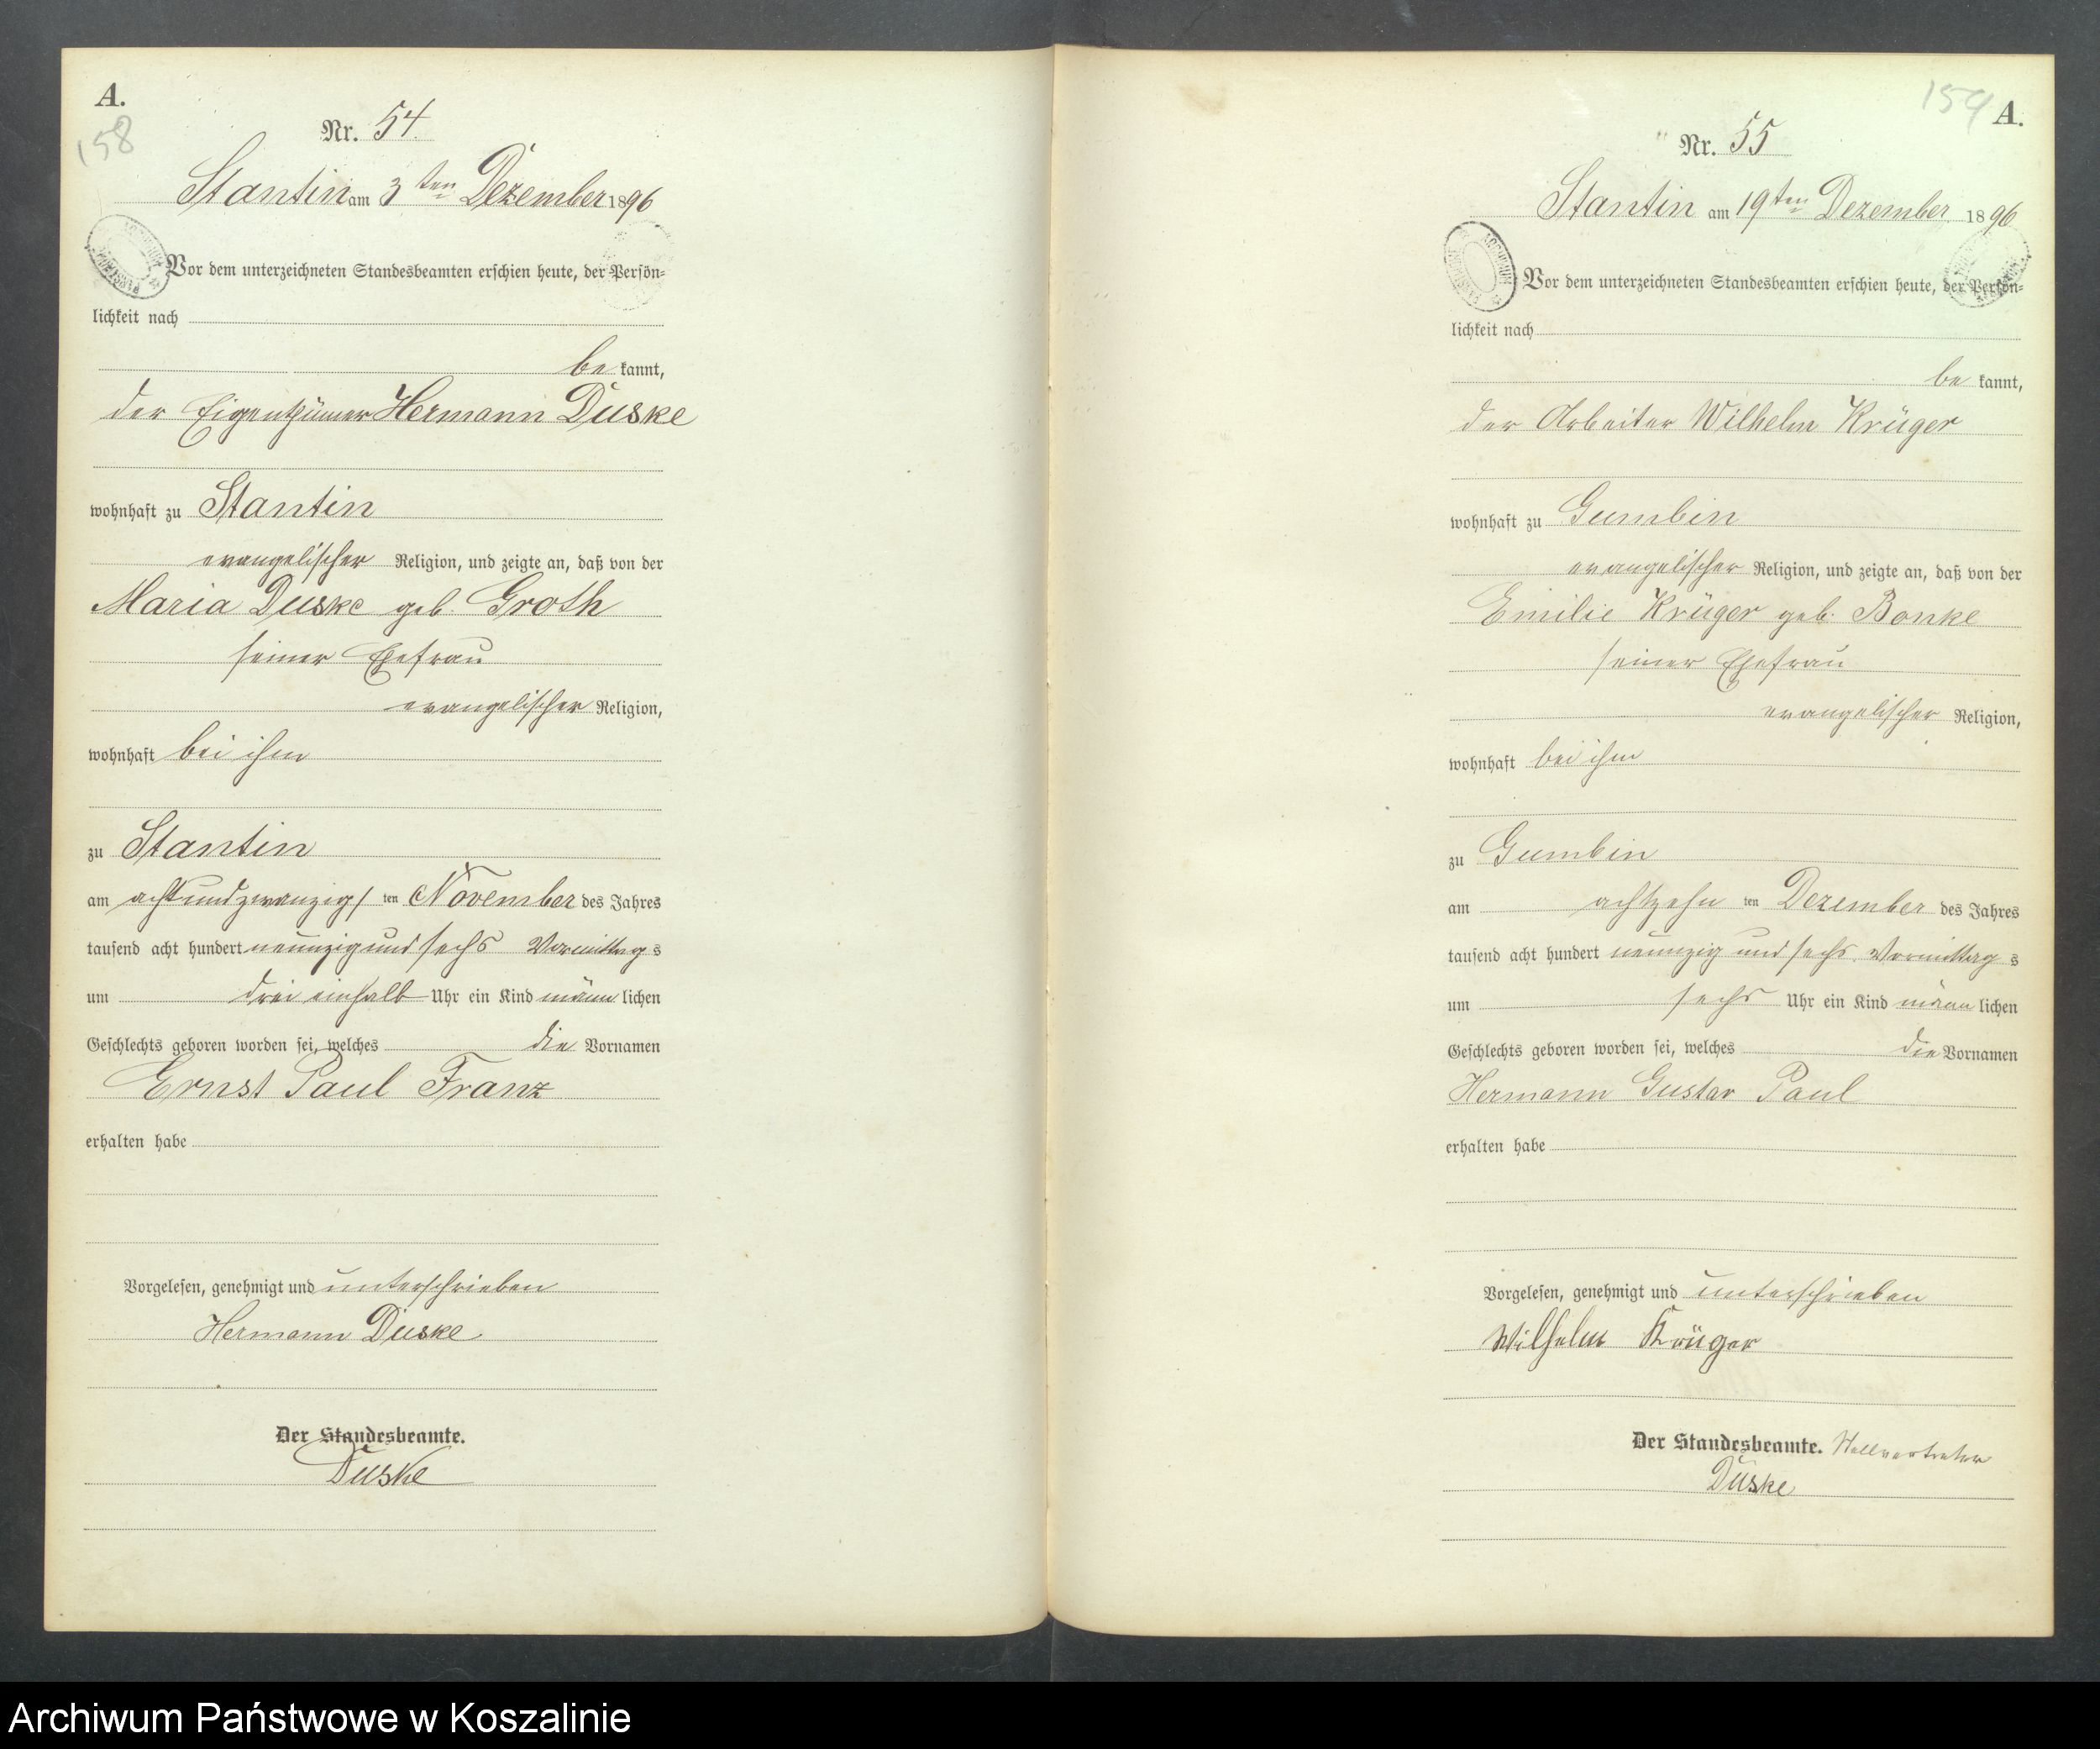 A.
158
Nr. 54.
Stantin am 3ten Dezember 1896
Vor dem unterzeichneten Standesbeamten erschien heute, der Persön=
lichkeit nach
be kannt,
der Eigenthümer Hermann Duske
wohnhaft zu Stantin
evangelischer Religion, und zeigte an, daß von der
Maria Duske geb. Groth
seiner Ehefrau
evangelischer Religion,
wohnhaft bei ihm
zu Stantin
am achtundzwanzig/ ten November des Jahres
tausend acht hundert neunzig und sechs Vormittag s
um drei einhalb Uhr ein Kind männ lichen
Geschlechts geboren worden sei, welches die Vornamen
Ernst Paul Franz
erhalten habe
Vorgelesen, genehmigt und unterschrieben
Hermann Duske
Der Standesbeamte.
Duske
159
A.
Nr. 55
Stantin am 19ten Dezember 1896
Vor dem unterzeichneten Standesbeamten erschien heute, der Persön=
lichkeit nach
be kannt,
der Arbeiter Wilhelm Krüger
wohnhaft zu Gumbin
evangelischer Religion, und zeigte an, daß von der
Emilie Krüger geb. Bonke
seiner Ehefrau
evangelischer Religion,
wohnhaft bei ihm
zu Gumbin
am achtzehn ten Dezember des Jahres
tausend acht hundert neunzig und sechs Vormittag s
um sechs Uhr ein Kind männ lichen
Geschlechts geboren worden sei, welches die Vornamen
Hermann Gustav Paul
erhalten habe
Vorgelesen, genehmigt und unterschrieben
Wilhelm Krüger
Der Standesbeamte. Stellvertreter
Duske
Archiwum Państwowe w Koszalinie